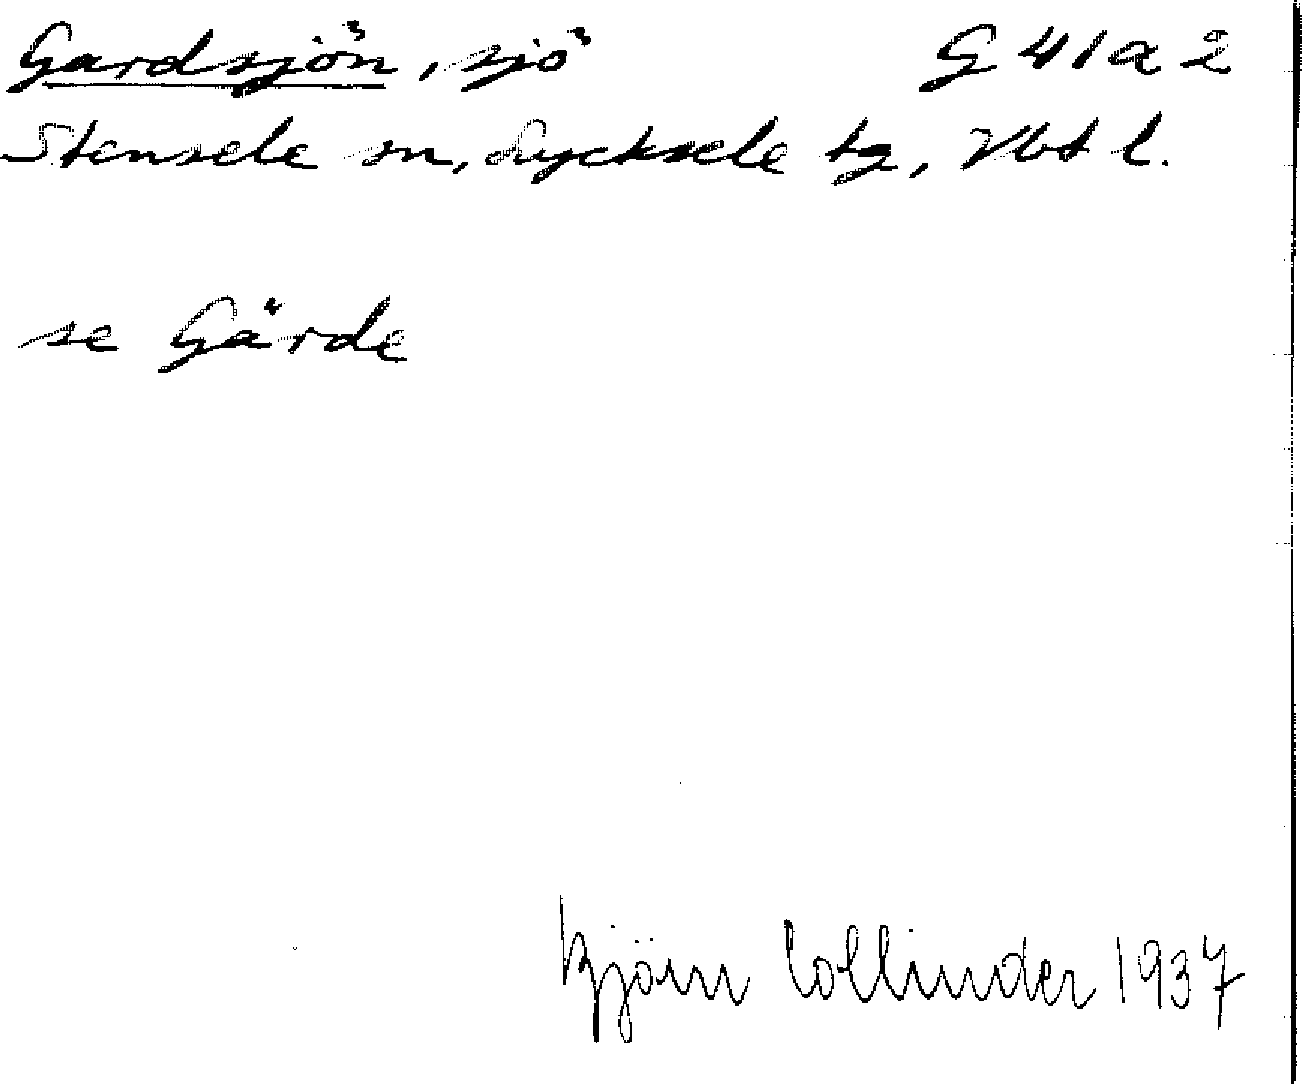 Gardsjön, sjö G 41 a 2
Stensele sn, Lycksele tg, Vbt l.
se Gärde
Björn Collinder 1937